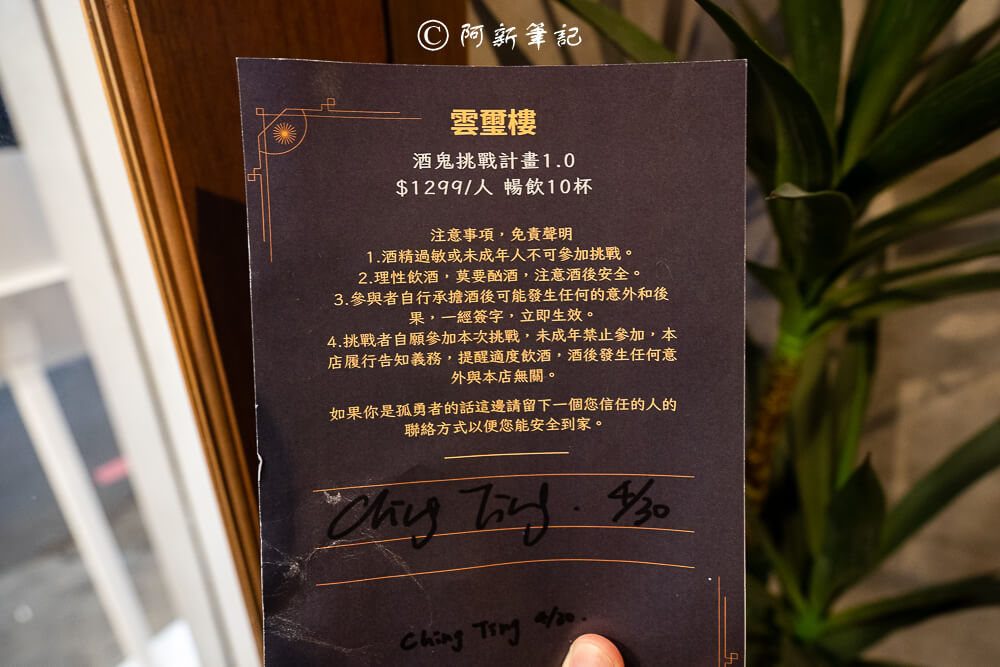 © 阿新筆記
雲璽樓
酒鬼挑戰計畫1.0
$1299/人 暢飲10杯
注意事項，免責聲明
1.酒精過敏或未成年人不可參加挑戰。
2.理性飲酒，莫要酗酒，注意酒後安全。
3.參與者自行承擔酒後可能發生任何的意外和後
果，一經簽字，立即生效。
4.挑戰者自願參加本次挑戰，未成年禁止參加，本
店履行告知義務，提醒適度飲酒，酒後發生任何意
外與本店無關。
如果你是孤勇者的話這邊請留下一個您信任的人的
聯絡方式以便您能安全到家。
Ching Ting. 4/30
Ching Ting 4/30.